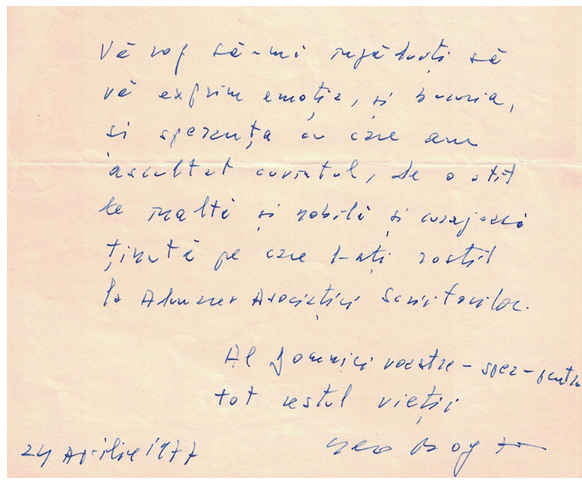 Vă rog să-mi îngăduiți să
vă exprim emoția, și bucuria,
și speranța cu care am
ascultat cuvîntul, de o atît
de înaltă și nobilă și curajoasă
ținută pe care l-ați rostit
la Adunarea Asociației Scriitorilor.
Al Domniei voastre - sper - pentru
tot restul vieții
24 Aprilie 1977